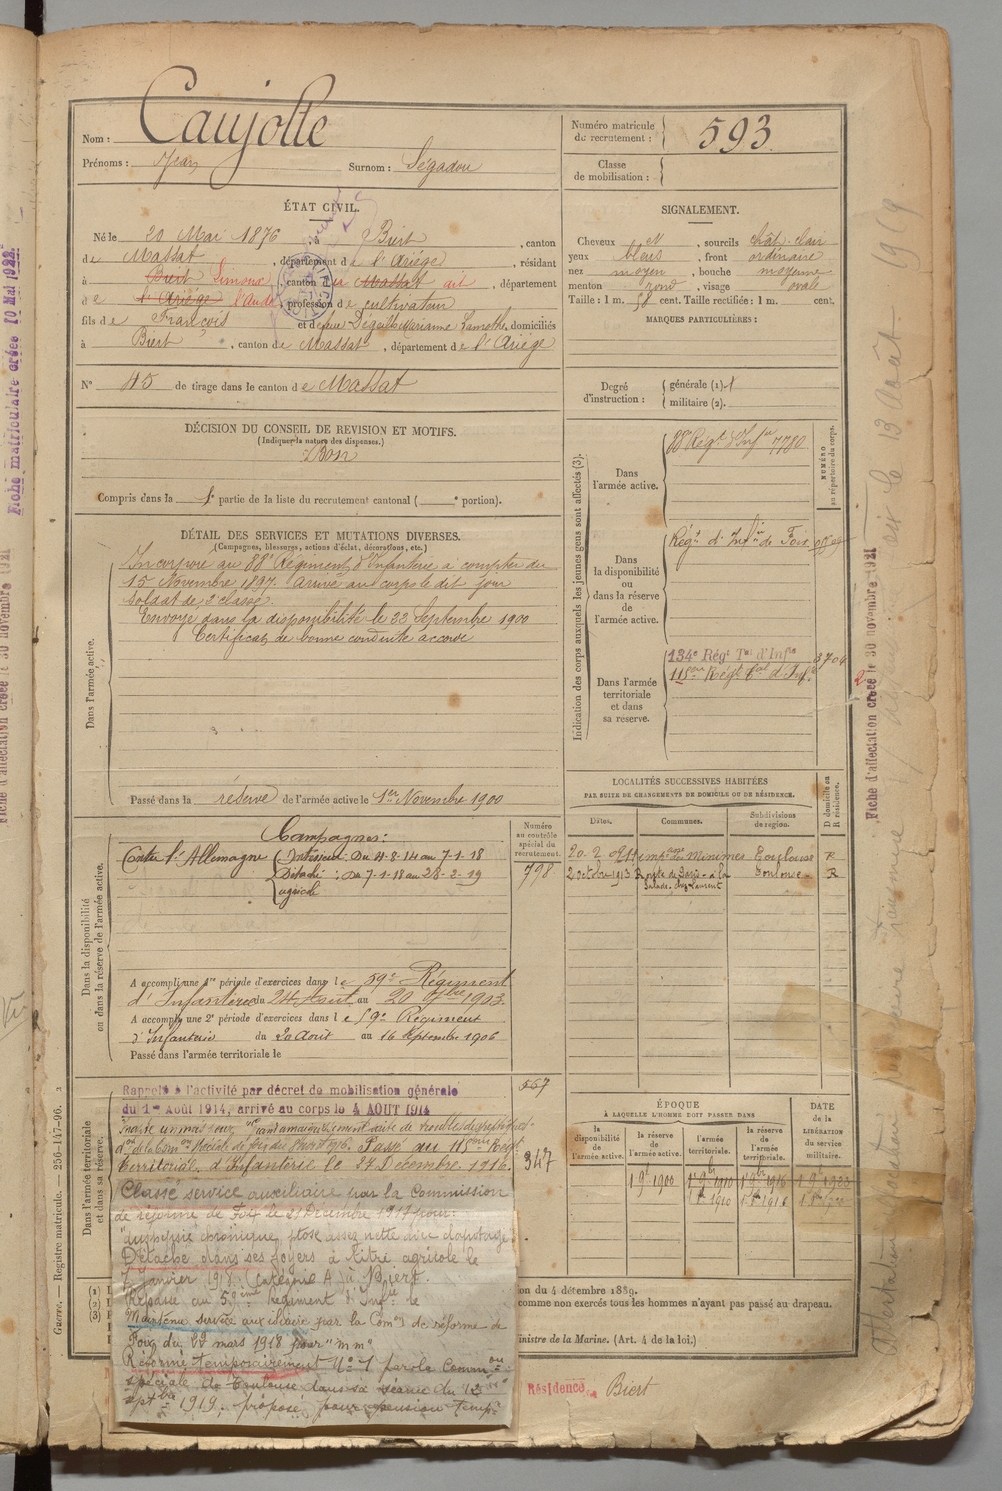 Nom : Caujolle
Prénoms : Jean Surnom : Ségadou
Numéro matricule du recrutement : 593
Classe de mobilisation :
ÉTAT CIVIL.
Né le 20 Mai 1876, à Biert, canton
de Massat, département de l'Ariège, résidant
à Biert Limoux, canton de Massat dit, département
de l'Ariège l'Aude, profession de cultivateur
fils de François et de feue Dégeilh Marianne Lamothe, domiciliés
à Biert, canton de Massat, département de l'Ariège
N° 45 de tirage dans le canton de Massat
SIGNALEMENT.
Cheveux et, sourcils chât. clair
yeux bleus, front ordinaire
nez moyen, bouche moyenne
menton rond, visage ovale
Taille : 1 m. cent. Taille rectifiée : 1 m. cent.
MARQUES PARTICULIÈRES :
Degré d'instruction : générale (1). 1
militaire (2).
DÉCISION DU CONSEIL DE REVISION ET MOTIFS.
(Indiquer la nature des dispenses.)
Bon
Compris dans la 1e partie de la liste du recrutement cantonal ( e portion).
DÉTAIL DES SERVICES ET MUTATIONS DIVERSES.
(Campagnes, blessures, actions d'éclat, décorations, etc.)
Dans l'armée active.
Incorporé au 88e Régiment d'Infanterie à compter du
15 Novembre 1897. Arrivé au corps le dit jour
soldat de 2e classe.
Envoyé dans la disponibilité le 22 Septembre 1900
Certificat de bonne conduite accordé
Passé dans la réserve de l'armée active le 1er Novembre 1900
Indication des corps auxquels les jeunes gens sont affectés (3).
NUMÉRO au répertoire du corps.
Dans l'armée active.
88e Régt d'Infie 7780
Dans la disponibilité ou dans la réserve de l'armée active.
Régt d'Infie de Foix
Dans l'armée territoriale et dans sa réserve.
134e Régt Tal d'Infie 3704
115eme Régt Tal d'Inf.
LOCALITÉS SUCCESSIVES HABITÉES
PAR SUITE DE CHANGEMENTS DE DOMICILE OU DE RÉSIDENCE.
Dates. Communes. Subdivisions de région. D domicile ou R résidence.
Minimes Toulouse R
2 octobre 1913 Route de Paris à la Salade, chez Laurent Toulouse R
Dans la disponibilité ou dans la réserve de l'armée active.
Numéro au contrôle spécial du recrutement.
798
Campagnes :
Contre l'Allemagne Intérieur : Du 4-8-14 au 7-1-18
Détaché : Du 7-1-18 au 28-2-19
agricole
A accompli une 1re période d'exercices dans le 59e Régiment
d'Infanterie du 24 Août au 20 7bre 1903
A accompli une 2e période d'exercices dans le 59e Régiment
d'Infanterie du 20 Août au 16 Septembre 1906
Passé dans l'armée territoriale le
Dans l'armée territoriale et dans sa réserve.
567
347
Rappelé à l'activité par décret de mobilisation générale
du 1er Août 1914, arrivé au corps le 4 AOUT 1914
Passé au 115eme Régt
Territorial d'Infanterie le 24 Décembre 1916.
Classé service auxiliaire par la Commission
de réforme de Foix le 21 Décembre 1917 pour :
"dyspepsie chronique, ptose assez nette avec clapotage"
Détaché dans ses foyers à titre agricole le
7 janvier 1918 (catégorie A) à Biert.
Repassé au 59eme Régiment d'Infie le
Maintenu service auxiliaire par la Comon de réforme de
Foix du 29 mars 1918 pour "m m"
Réformé temporairement N° 1 par la Common
spéciale de Toulouse dans sa séance du 13
sptbre 1919, proposé pour pension temp.
ÉPOQUE
À LAQUELLE L'HOMME DOIT PASSER DANS
la disponibilité de l'armée active. la réserve de l'armée active. l'armée territoriale. la réserve de l'armée territoriale.
DATE de la LIBÉRATION du service militaire.
1 9bre 1900 1 9bre 1910 1 9bre 1916
(1)
(2)
(3)
on du 4 décembre 1889.
comme non exercés tous les hommes n'ayant pas passé au drapeau.
inistre de la Marine. (Art. 4 de la loi.)
Résidence Biert
Guerre. — Registre matricule. — 256-147-96. 2
Fiche matriculaire créée 10 Mai 1922.
Fiche d'affectation créée le 30 novembre 1921
Fiche d'affectation créée le 30 novembre 1921
le 13 août 1919